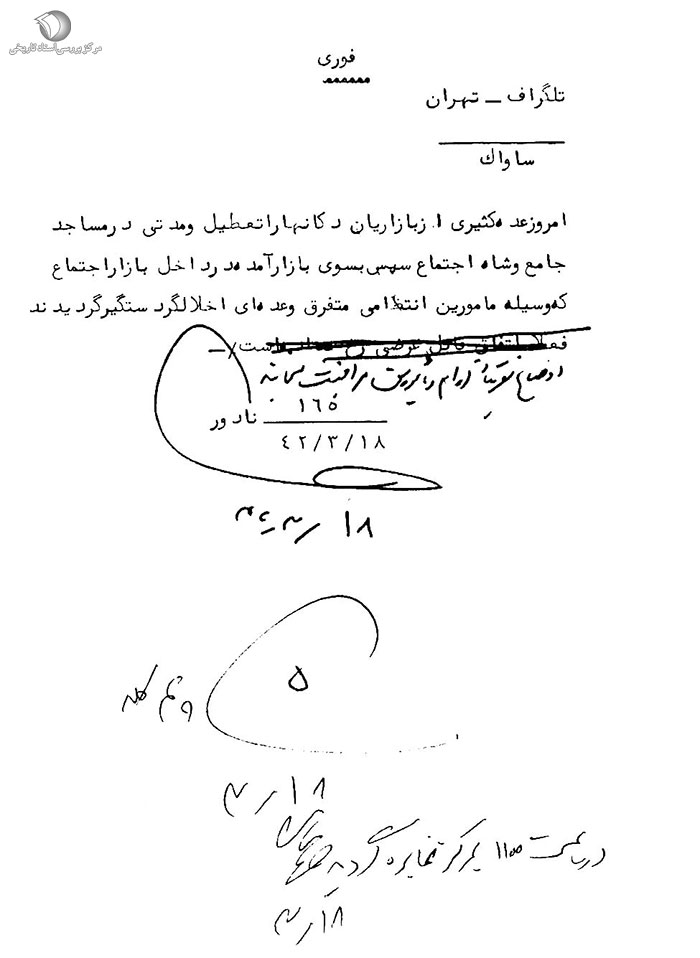 مرکز بررسی اسناد تاریخی
فوری
تلگراف ــ تهران
ساواك
امروزعده كثیری از بازاریان دكانهاراتعطیل ومدتی درمساجد
جامع وشاه اجتماع سپس بسوی بازارآمده درداخل بازاراجتماع
كه وسیله مامورین انتظامی متفرق وعده ای اخلالگردستگیرگردیدند
اوضاع تقریباً آرام و مراقبت
١٦٥
نادور
٤٢/٣/١٨
١٨
٥
١٨
در ساعت ١١٠٠ بمرکز مخابره گردید
١٨